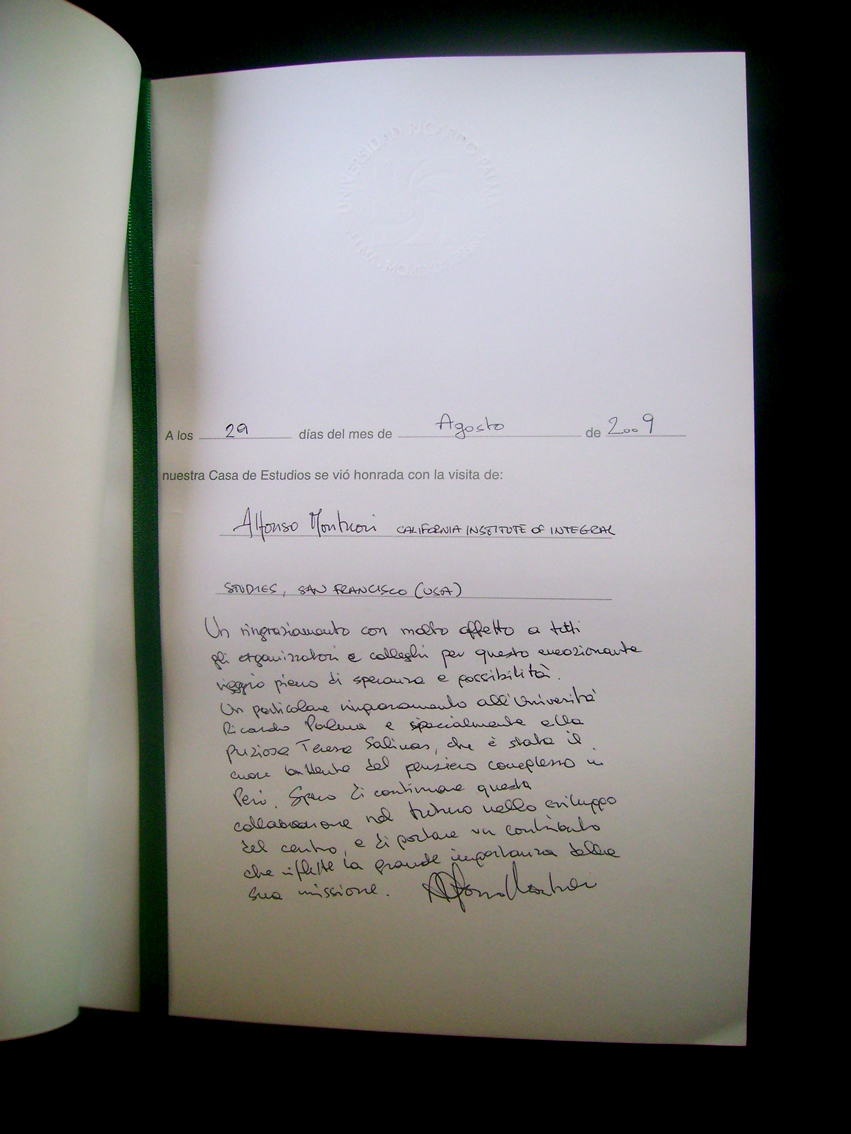 UNIVERSIDAD RICARDO PALMA
A los 29 días del mes de Agosto de 2009
nuestra Casa de Estudios se vió honrada con la visita de:
Alfonso Montuori CALIFORNIA INSTITUTE OF INTEGRAL
STUDIES, SAN FRANCISCO (USA)
Un ringraziamento con molto affetto a tutti
gli organizzatori e colleghi per questo emozionante
viaggio pieno di speranza e possibilità.
Un particolare ringraziamento all'Università
Ricardo Palma e specialmente alla
preziosa Teresa Salinas, che è stata il
cuore battente del pensiero complesso in
Perù. Spero di continuare questa
collaborazione nel futuro nello sviluppo
del centro, e di portare un contributo
che riflette la grande importanza della
sua missione. Alfonso Montuori